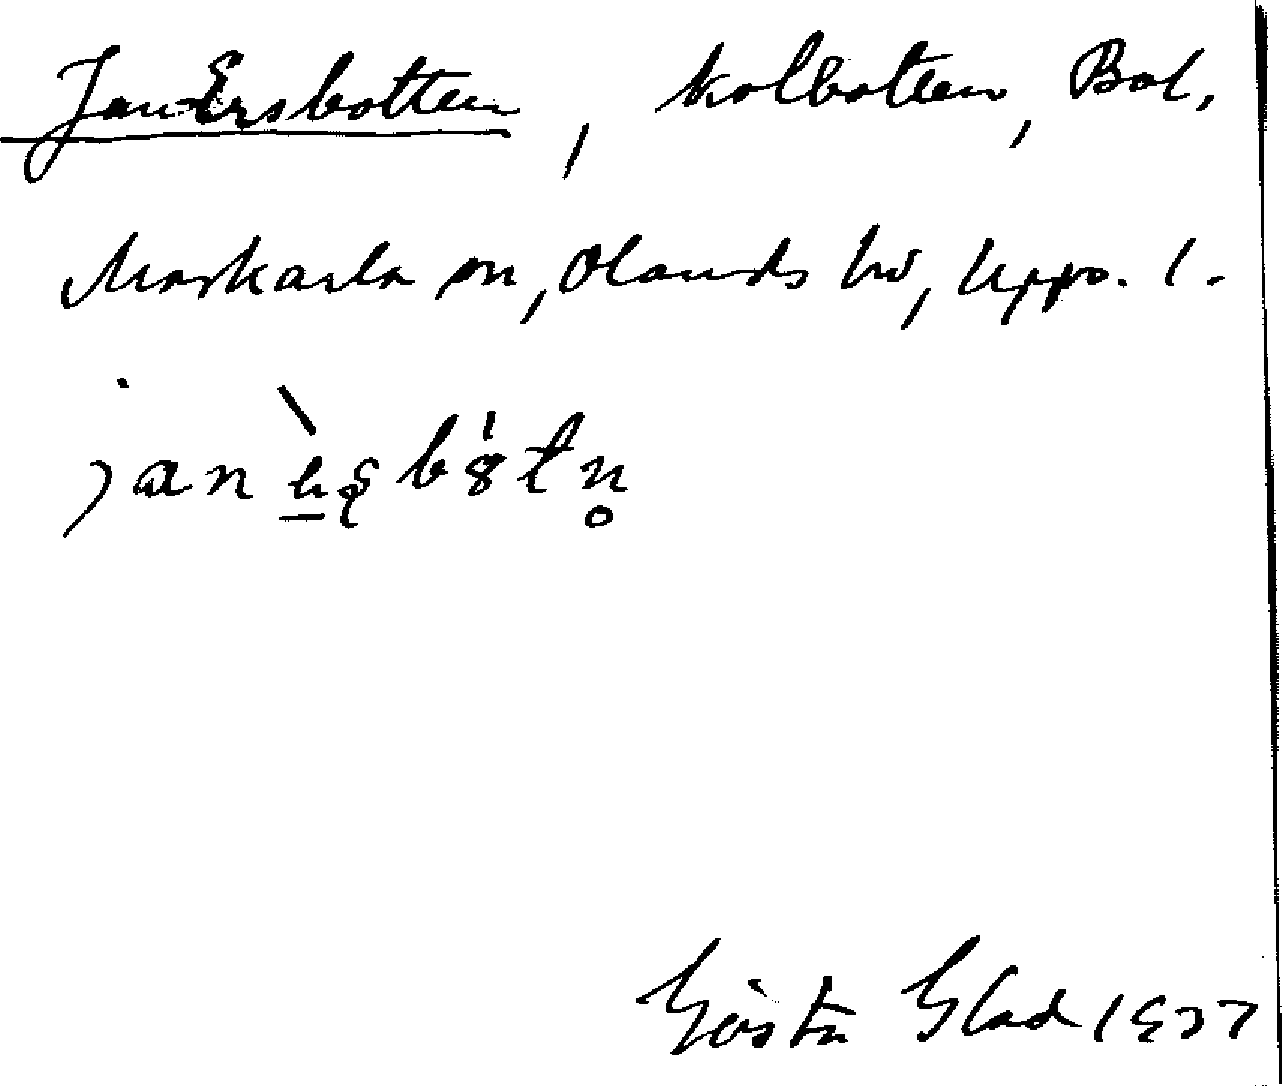 Jan-Ersbotten, kolbotten, Bol,
Morkarla sn, Olands hd, Upps. l.
Gösta Glad 1937